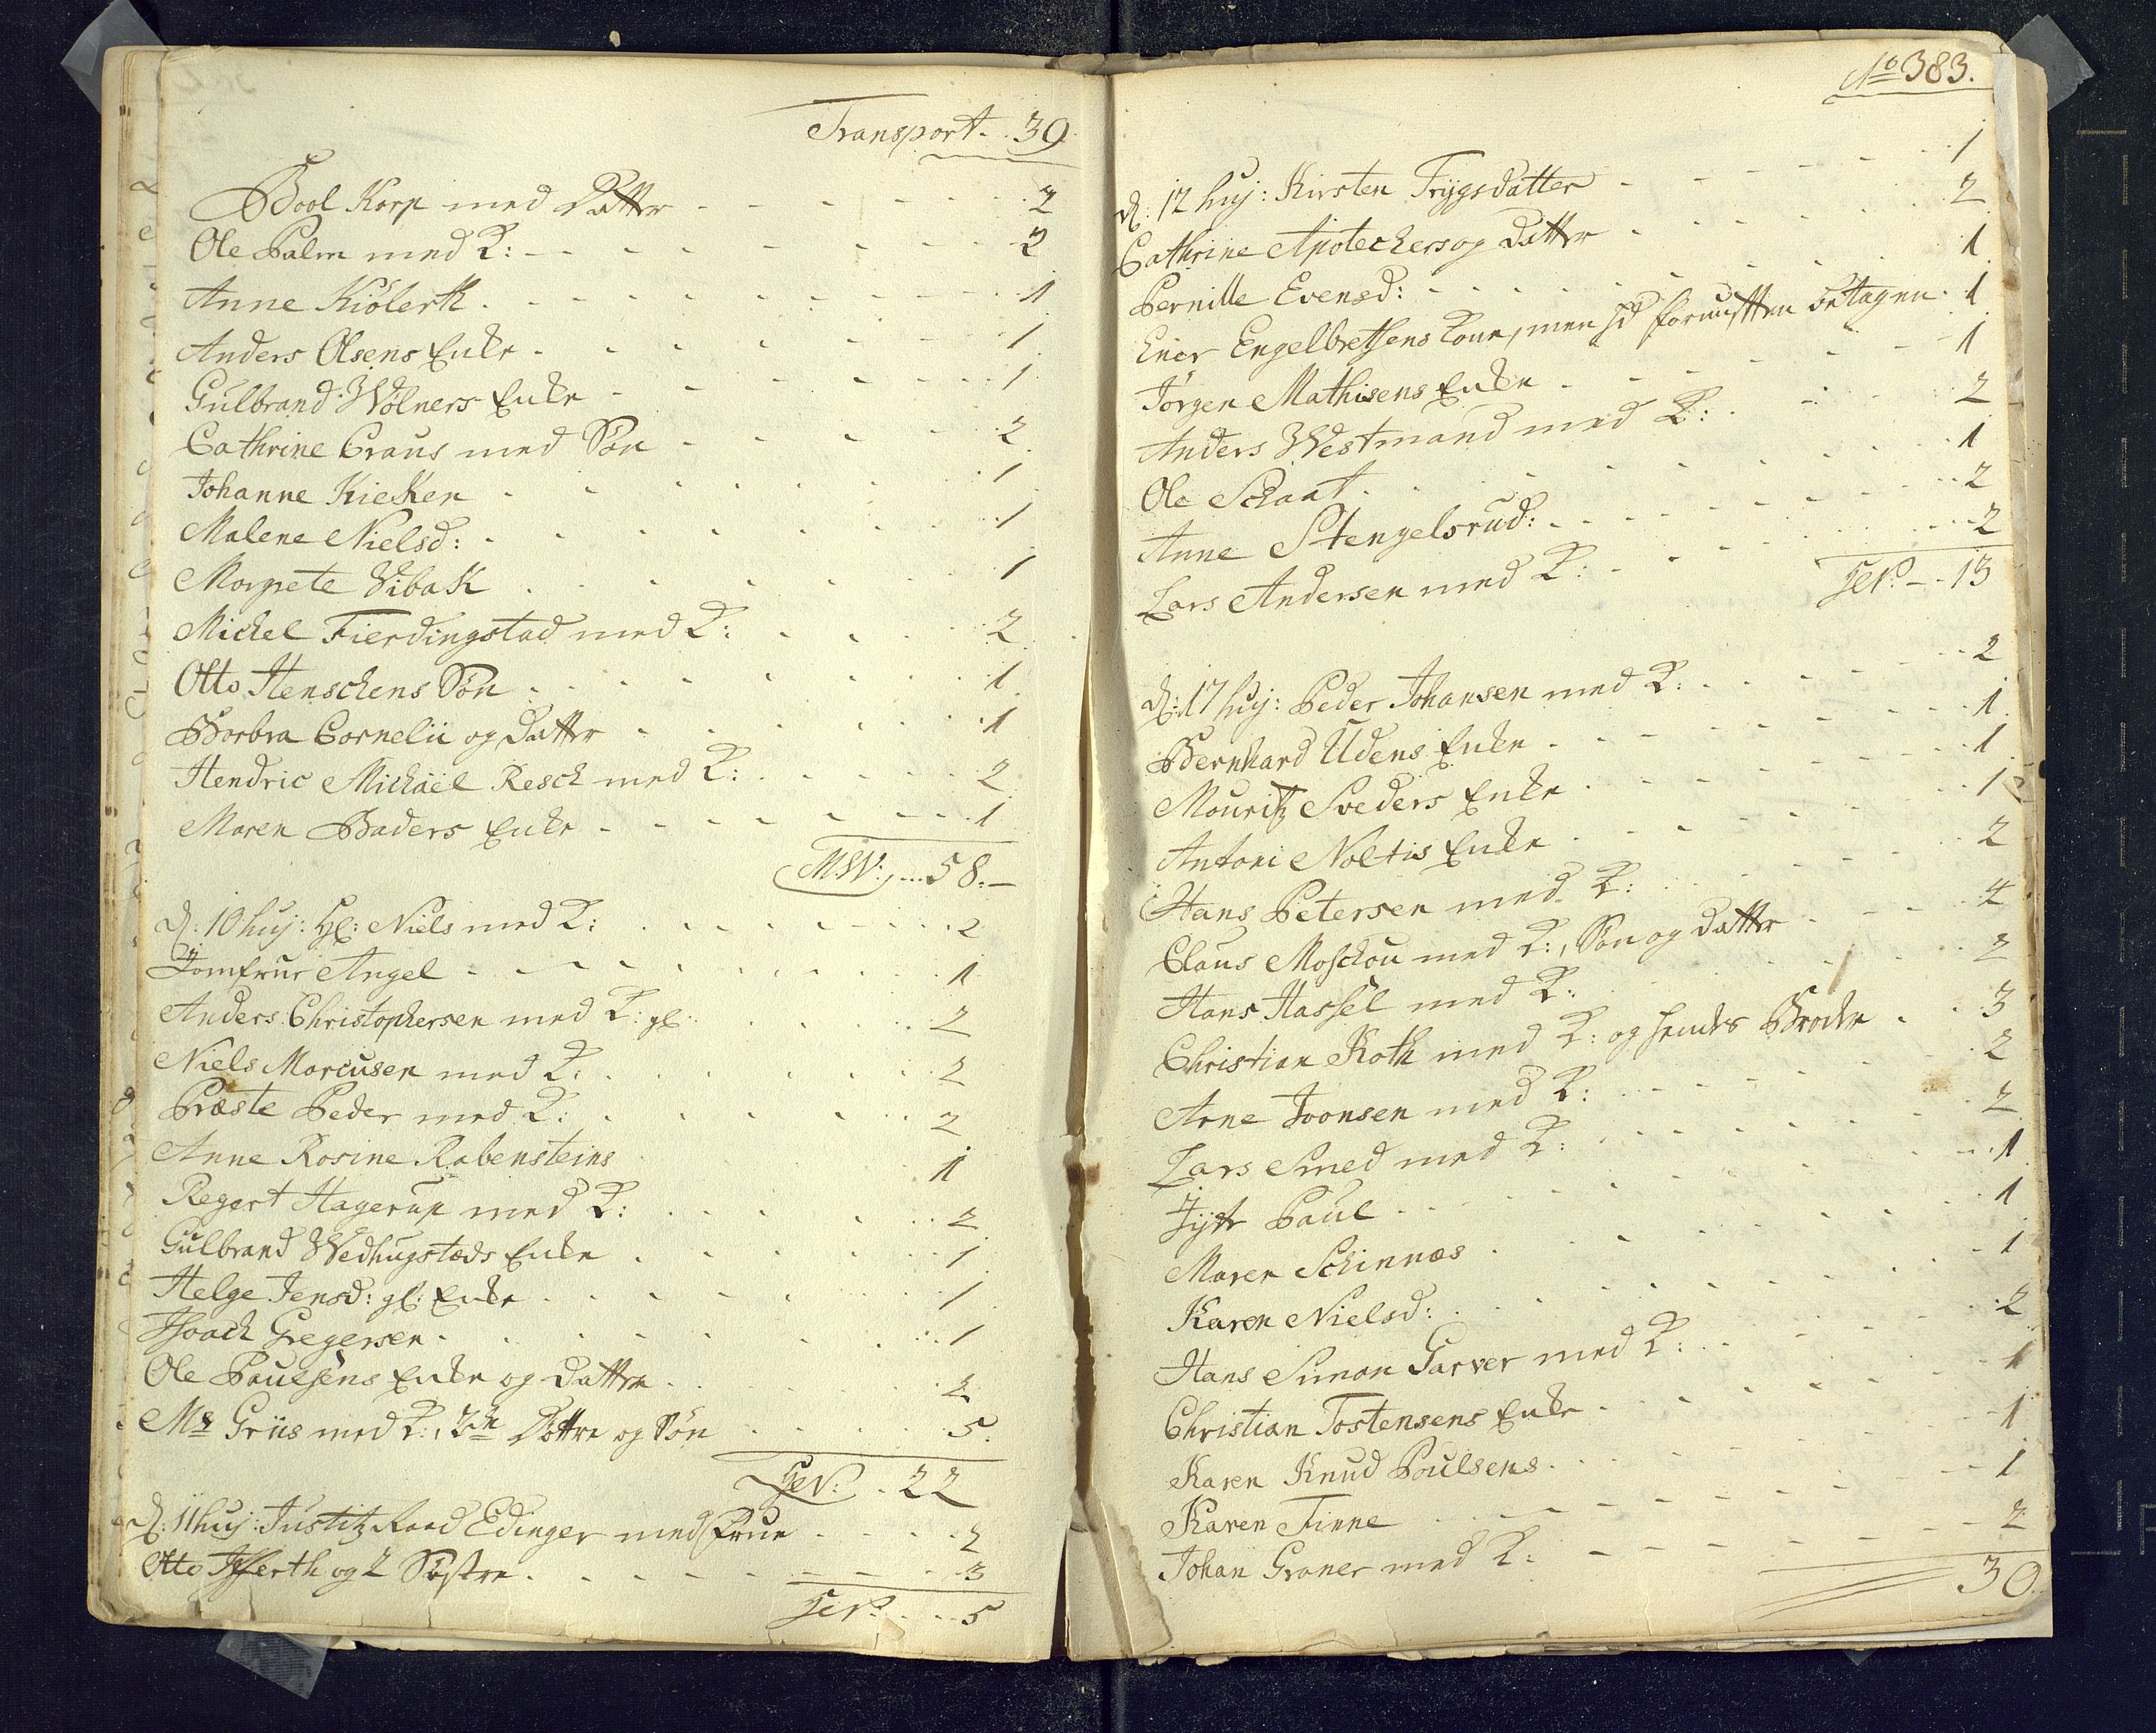 Transport. . 39
Bool Korp med Datter - - - - 2
Ole Palm med K: - - - - 2
Anne Kiölerth - - - - 1
Anders Olsens Enke - - - - 1
Gulbrand Wölners Enke - - - - 1
Cathrine Craus med Sön - - - - 2
Johanne Kieken - - - - 1
Malene Nielsd: - - - - 1
Morgrete Vibak - - - - 1
Michel Fierdingstad med K: - - - - 2
Otto Henschens Sön - - - - 1
Borbra Cornelii og Datter - - - - 1
Hendric Michäel Resch med K: - - - - 2
Maren Baders Enke - - - - 1
MW: ... 58. -
d: 10 huj: Hl: Niels med K: - - - - 2
Jomfrue Angel - - - - 1
Anders Christophersen med K: gl: - - - - 2
Niels Morcusen med K: - - - - 2
Præste Peder med K: - - - - 2
Anne Rosine Rabensteins 1
Regert Hagerup med K: - - - - 2
Gulbrand Wedhugstads Enke - - - - 1
Helge Jensd: gl: Enke - - - - 1
Isaach Gregersen - - - - 1
Ole Paulsens Enke og Datter - - - - 2
Mr Griis med K:, 2de Döttre og Sön - - - - 5.
. 22
d: 11 huj: Justitz Raad Edinger med Frue - - - - 2
Otto og 2 Söstre - - - - 3
. . . 5
No 383.
d: 12 huj: Kirsten Trygsdatter - - - - 1
Cathrine Apotechers og Datter - - - - 2
Pernille Evensd: - - - - 1
Ener Engelbretsens Kone, men sd fornuften betagen. 1
Jörgen Mathisens Enke - - - - 1
Anders Westmand med K: - - - - 2
Ole Schaat - - - - 1
Anne Stengelsrud: - - - - 2
Lars Andersen med K: - - - - 2
- - 13
d: 17 huj: Peder Johansen med K: - - - - 2
Bernhard Udens Enke - - - - 1
Mouritz Sveders Enke - - - - 1
Antoni Noltis Enke - - - - 1
Hans Petersen med K: - - - - 2
Claus Moschou med K:, Sön og Datter - - - - 4
Hans Hassel med K: - - - - 2
Christian Roth med K: og hendes Broder - - 3
Arne Joonsen med K: - - - - 2
Lars Smed med K: - - - - 2
Paul - - - - 1
Maren Schinnæs - - - - 1
Karen Nielsd: - - - - 1
Hans Simon Garver med K: - - - - 2
Christian Tostensens Enke - - - - 1
Karen Knud Poulsens - - - - 1
Karen Finne - - - - 1
Johan Graner med K: - - - - 2
30